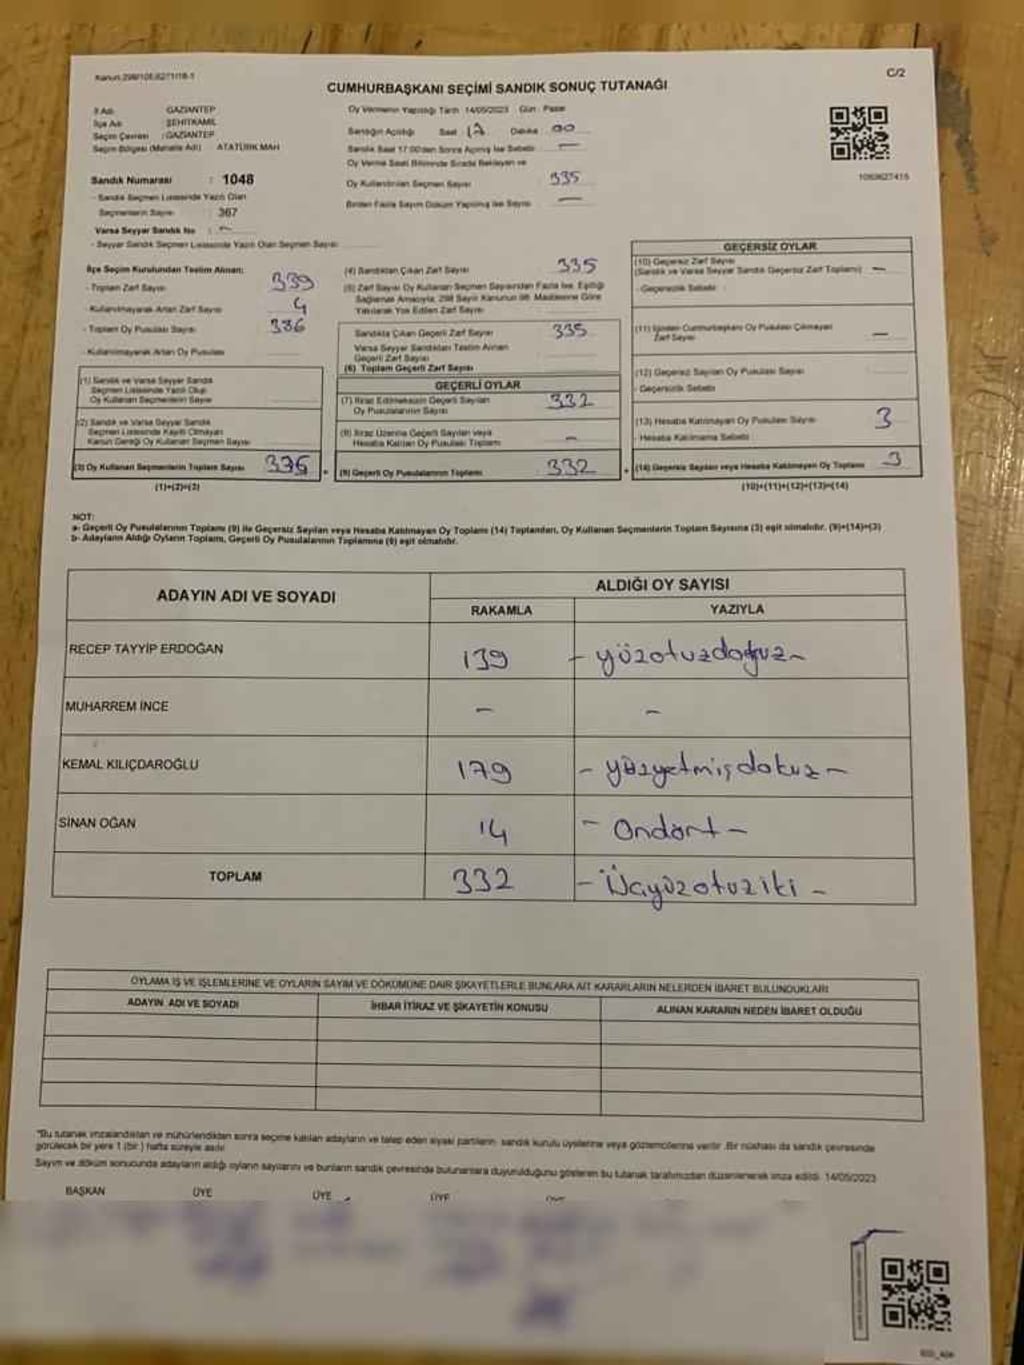 Kanun:298/105,6271/18-1
C/2
CUMHURBAŞKANI SEÇİMİ SANDIK SONUÇ TUTANAĞI
İl Adı : GAZİANTEP
İlçe Adı : ŞEHİTKAMİL
Seçim Çevresi : GAZİANTEP
Seçim Bölgesi (Mahalle Adı) : ATATÜRK MAH
Sandık Numarası : 1048
- Sandık Seçmen Listesinde Yazılı Olan
Seçmenlerin Sayısı : 367
Varsa Seyyar Sandık No : -
- Seyyar Sandık Seçmen Listesinde Yazılı Olan Seçmen Sayısı
Oy Vermenin Yapıldığı Tarih 14/05/2023 Gün : Pazar
Sandığın Açıldığı Saat 17 Dakika 00
Sandık Saat 17:00'den Sonra Açılmış İse Sebebi -
Oy Verme Saati Bitiminde Sırada Bekleyen ve
Oy Kullandırılan Seçmen Sayısı 335
Birden Fazla Sayım Döküm Yapılmış İse Sayısı -
1083627415
İlçe Seçim Kurulundan Teslim Alınan;
- Toplam Zarf Sayısı 339
- Kullanılmayarak Artan Zarf Sayısı 4
- Toplam Oy Pusulası Sayısı 386
- Kullanılmayarak Artan Oy Pusulası
(1) Sandık ve Varsa Seyyar Sandık
Seçmen Listesinde Yazılı Olup
Oy Kullanan Seçmenlerin Sayısı
(2) Sandık ve Varsa Seyyar Sandık
Seçmen Listesinde Kayıtlı Olmayan
Kanun Gereği Oy Kullanan Seçmen Sayısı
(3) Oy Kullanan Seçmenlerin Toplam Sayısı 335
(1)+(2)=(3)
(4) Sandıktan Çıkan Zarf Sayısı 335
(5) Zarf Sayısı Oy Kullanan Seçmen Sayısından Fazla İse, Eşitliği
Sağlamak Amacıyla, 298 Sayılı Kanunun 98. Maddesine Göre
Yakılarak Yok Edilen Zarf Sayısı
Sandıkta Çıkan Geçerli Zarf Sayısı 335
Varsa Seyyar Sandıktan Teslim Alınan
Geçerli Zarf Sayısı
(6) Toplam Geçerli Zarf Sayısı
GEÇERLİ OYLAR
(7) İtiraz Edilmeksizin Geçerli Sayılan
Oy Pusulalarının Sayısı 332
(8) İtiraz Üzerine Geçerli Sayılan veya
Hesaba Katılan Oy Pusulası Toplamı -
(9) Geçerli Oy Pusulalarının Toplamı 332
GEÇERSİZ OYLAR
(10) Geçersiz Zarf Sayısı
(Sandık ve Varsa Seyyar Sandık Geçersiz Zarf Toplamı) -
- Geçersizlik Sebebi
(11) İçinden Cumhurbaşkanı Oy Pusulası Çıkmayan
Zarf Sayısı -
(12) Geçersiz Sayılan Oy Pusulası Sayısı
- Geçersizlik Sebebi
(13) Hesaba Katılmayan Oy Pusulası Sayısı 3
- Hesaba Katılmama Sebebi
(14) Geçersiz Sayılan veya Hesaba Katılmayan Oy Toplamı 3
(10)+(11)+(12)+(13)=(14)
NOT:
a- Geçerli Oy Pusulalarının Toplamı (9) ile Geçersiz Sayılan veya Hesaba Katılmayan Oy Toplamı (14) Toplamları, Oy Kullanan Seçmenlerin Toplam Sayısına (3) eşit olmalıdır. (9)+(14)=(3)
b- Adayların Aldığı Oyların Toplamı, Geçerli Oy Pusulalarının Toplamına (9) eşit olmalıdır.
ADAYIN ADI VE SOYADI
ALDIĞI OY SAYISI
RAKAMLA YAZIYLA
RECEP TAYYİP ERDOĞAN 139 - yüzotuzdokuz -
MUHARREM İNCE - -
KEMAL KILIÇDAROĞLU 179 - yüzyetmişdokuz -
SİNAN OĞAN 14 - Ondört -
TOPLAM 332 - Üçyüzotuziki -
OYLAMA İŞ VE İŞLEMLERİNE VE OYLARIN SAYIM VE DÖKÜMÜNE DAİR ŞİKAYETLERLE BUNLARA AİT KARARLARIN NELERDEN İBARET BULUNDUKLARI
ADAYIN ADI VE SOYADI İHBAR İTİRAZ VE ŞİKAYETİN KONUSU ALINAN KARARIN NEDEN İBARET OLDUĞU
"Bu tutanak imzalandıktan ve mühürlendikten sonra seçime katılan adayların ve talep eden siyasi partilerin sandık kurulu üyelerine veya gözlemcilerine verilir. Bir nüshası da sandık çevresinde
görülecek bir yere 1 (bir) hafta süreyle asılır.
Sayım ve döküm sonucunda adayların aldığı oyların sayılarını ve bunların sandık çevresinde bulunanlara duyurulduğunu gösteren bu tutanak tarafımızdan düzenlenerek imza edildi. 14/05/2023
BAŞKAN ÜYE ÜYE ÜYE